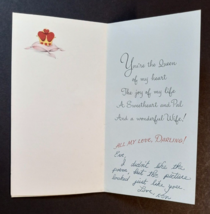 You're the Queen
of my heart
The joy of my life
A Sweetheart and Pal
And a wonderful Wife!
ALL MY LOVE, DARLING!
I didn't like the
poem, but the picture
looked just like you.
Love